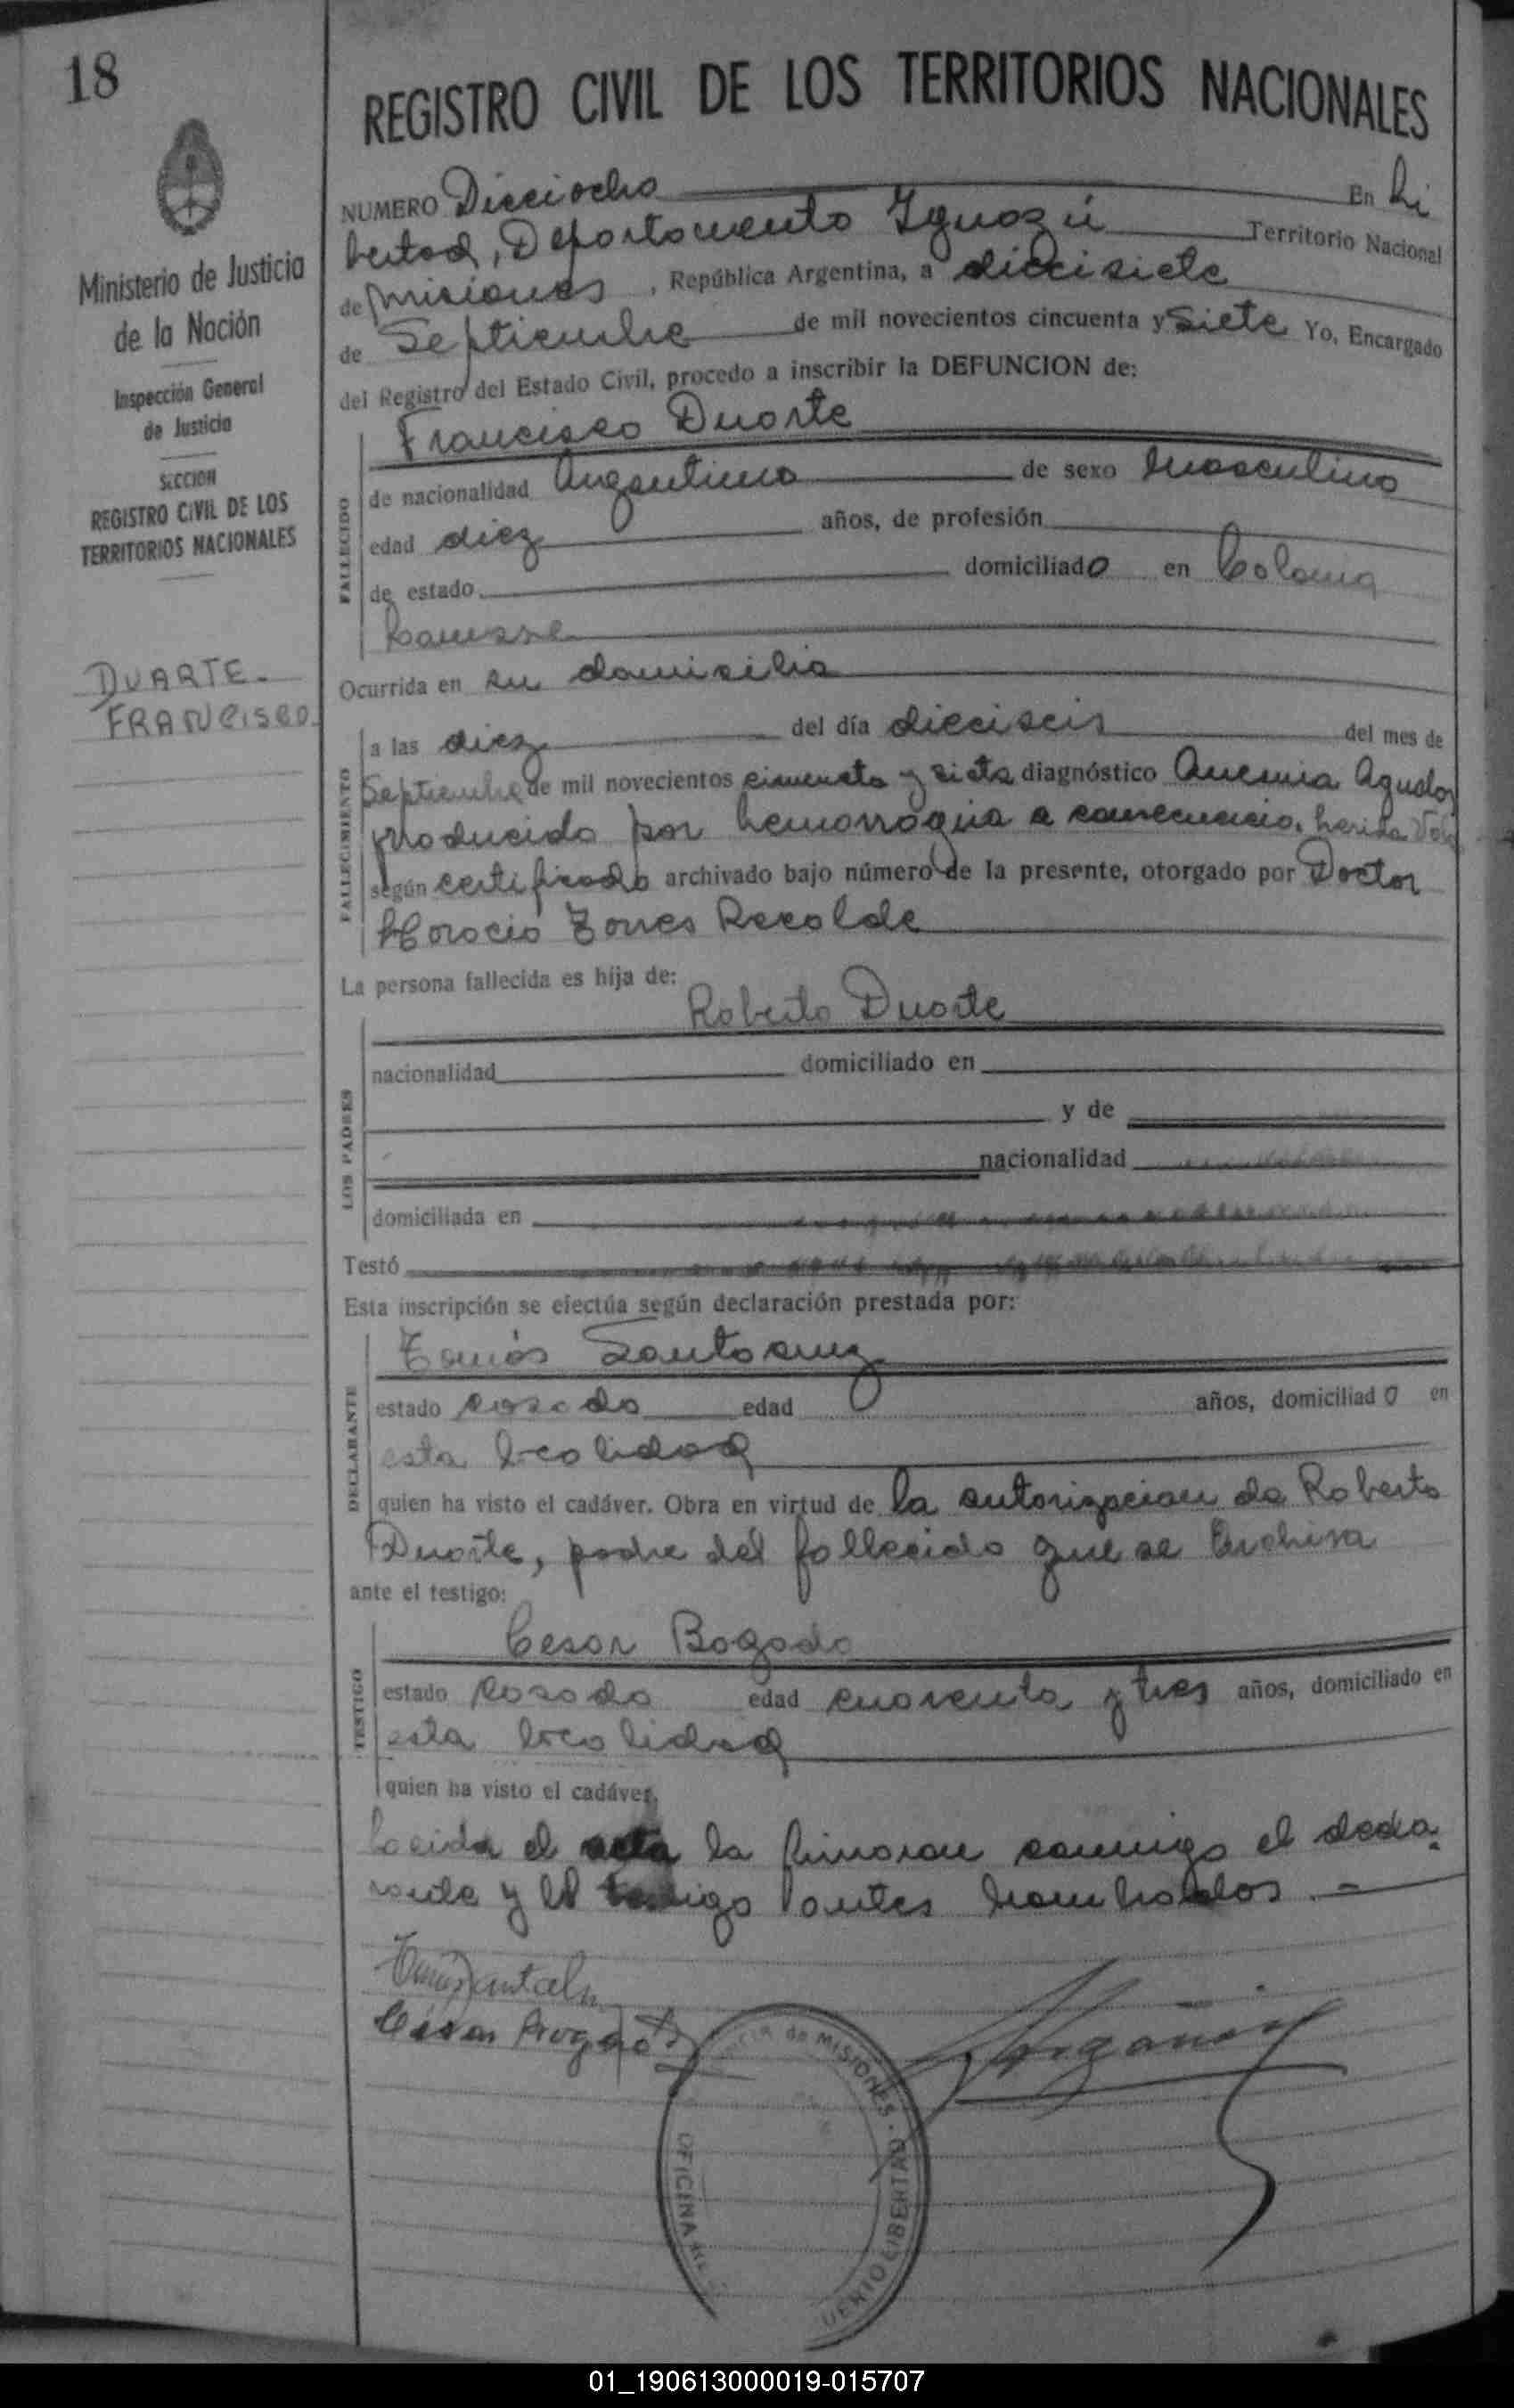 18
Ministerio de Justicia
de la Nación
Inspección General
de Justicia
SECCION
REGISTRO CIVIL DE LOS
TERRITORIOS NACIONALES
DUARTE.
FRANCISCO.
REGISTRO CIVIL DE LOS TERRITORIOS NACIONALES
NUMERO Dieciocho En Li
bertad, Departamento Iguazú Territorio Nacional
de Misiones, República Argentina, a diecisiete
de Septiembre de mil novecientos cincuenta y siete Yo, Encargado
del Registro del Estado Civil, procedo a inscribir la DEFUNCION de:
Francisco Duarte
FALLECIDO
de nacionalidad Argentino de sexo Masculino
edad diez años, de profesión
de estado domiciliado en Colonia
Lanusse
Ocurrida en su domisilio
FALLECIMIENTO
a las diez del día dieciseis del mes de
Septiembre de mil novecientos cincuenta y siete diagnóstico Anemia Aguda
producida por hemorragia a consecuencia, herida
según certificado archivado bajo número de la presente, otorgado por Doctor
Horacio Torres Recalde
La persona fallecida es hija de:
Roberto Duarte
LOS PADRES
nacionalidad domiciliado en
y de
nacionalidad
domiciliada en
Testó
Esta inscripción se efectúa según declaración prestada por:
Tomás Santacruz
DECLARANTE
estado casado edad años, domiciliado en
esta localidad
quien ha visto el cadáver. Obra en virtud de la autorizacion de Roberto
Duarte, padre del fallecido que se Archiva
ante el testigo:
Cesar Bogado
TESTIGO
estado casado edad cuarenta y tres años, domiciliado en
esta localidad
quien ha visto el cadáver.
Leida el acta la firmaron conmigo el decla-
rante y el testigo antes nombrados.-
de MISIONES - PUERTO LIBERTAD
OFICINA
01_190613000019-015707